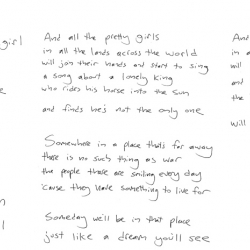 girl
And all the pretty girls
in all the lands across the world
will join their hands and start to sing
a song about a lonely king
who rides his horse into the sun
and finds he's not the only one
Somewhere in a place that's far away
there is no such thing as war
the people there are smiling every day
'cause they have something to live for
Someday we'll be in that place
just like a dream you'll see
And
in a
will
and
the
will